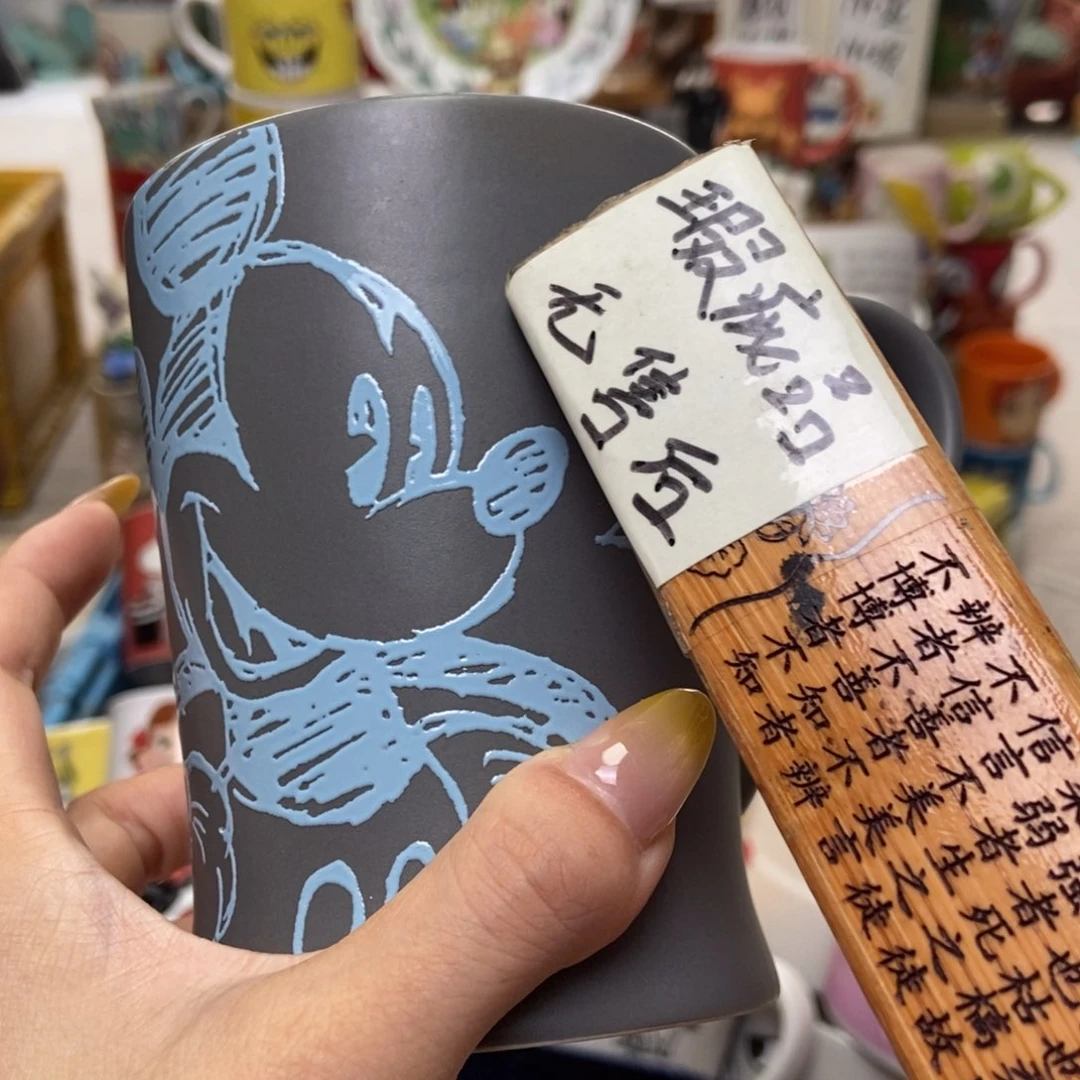 瑕疵品
无售后
也枯槁故
强者死之徒
弱者生之徒
信言不美美言
不信善者不辨
辨者不善知者
不博博者不知